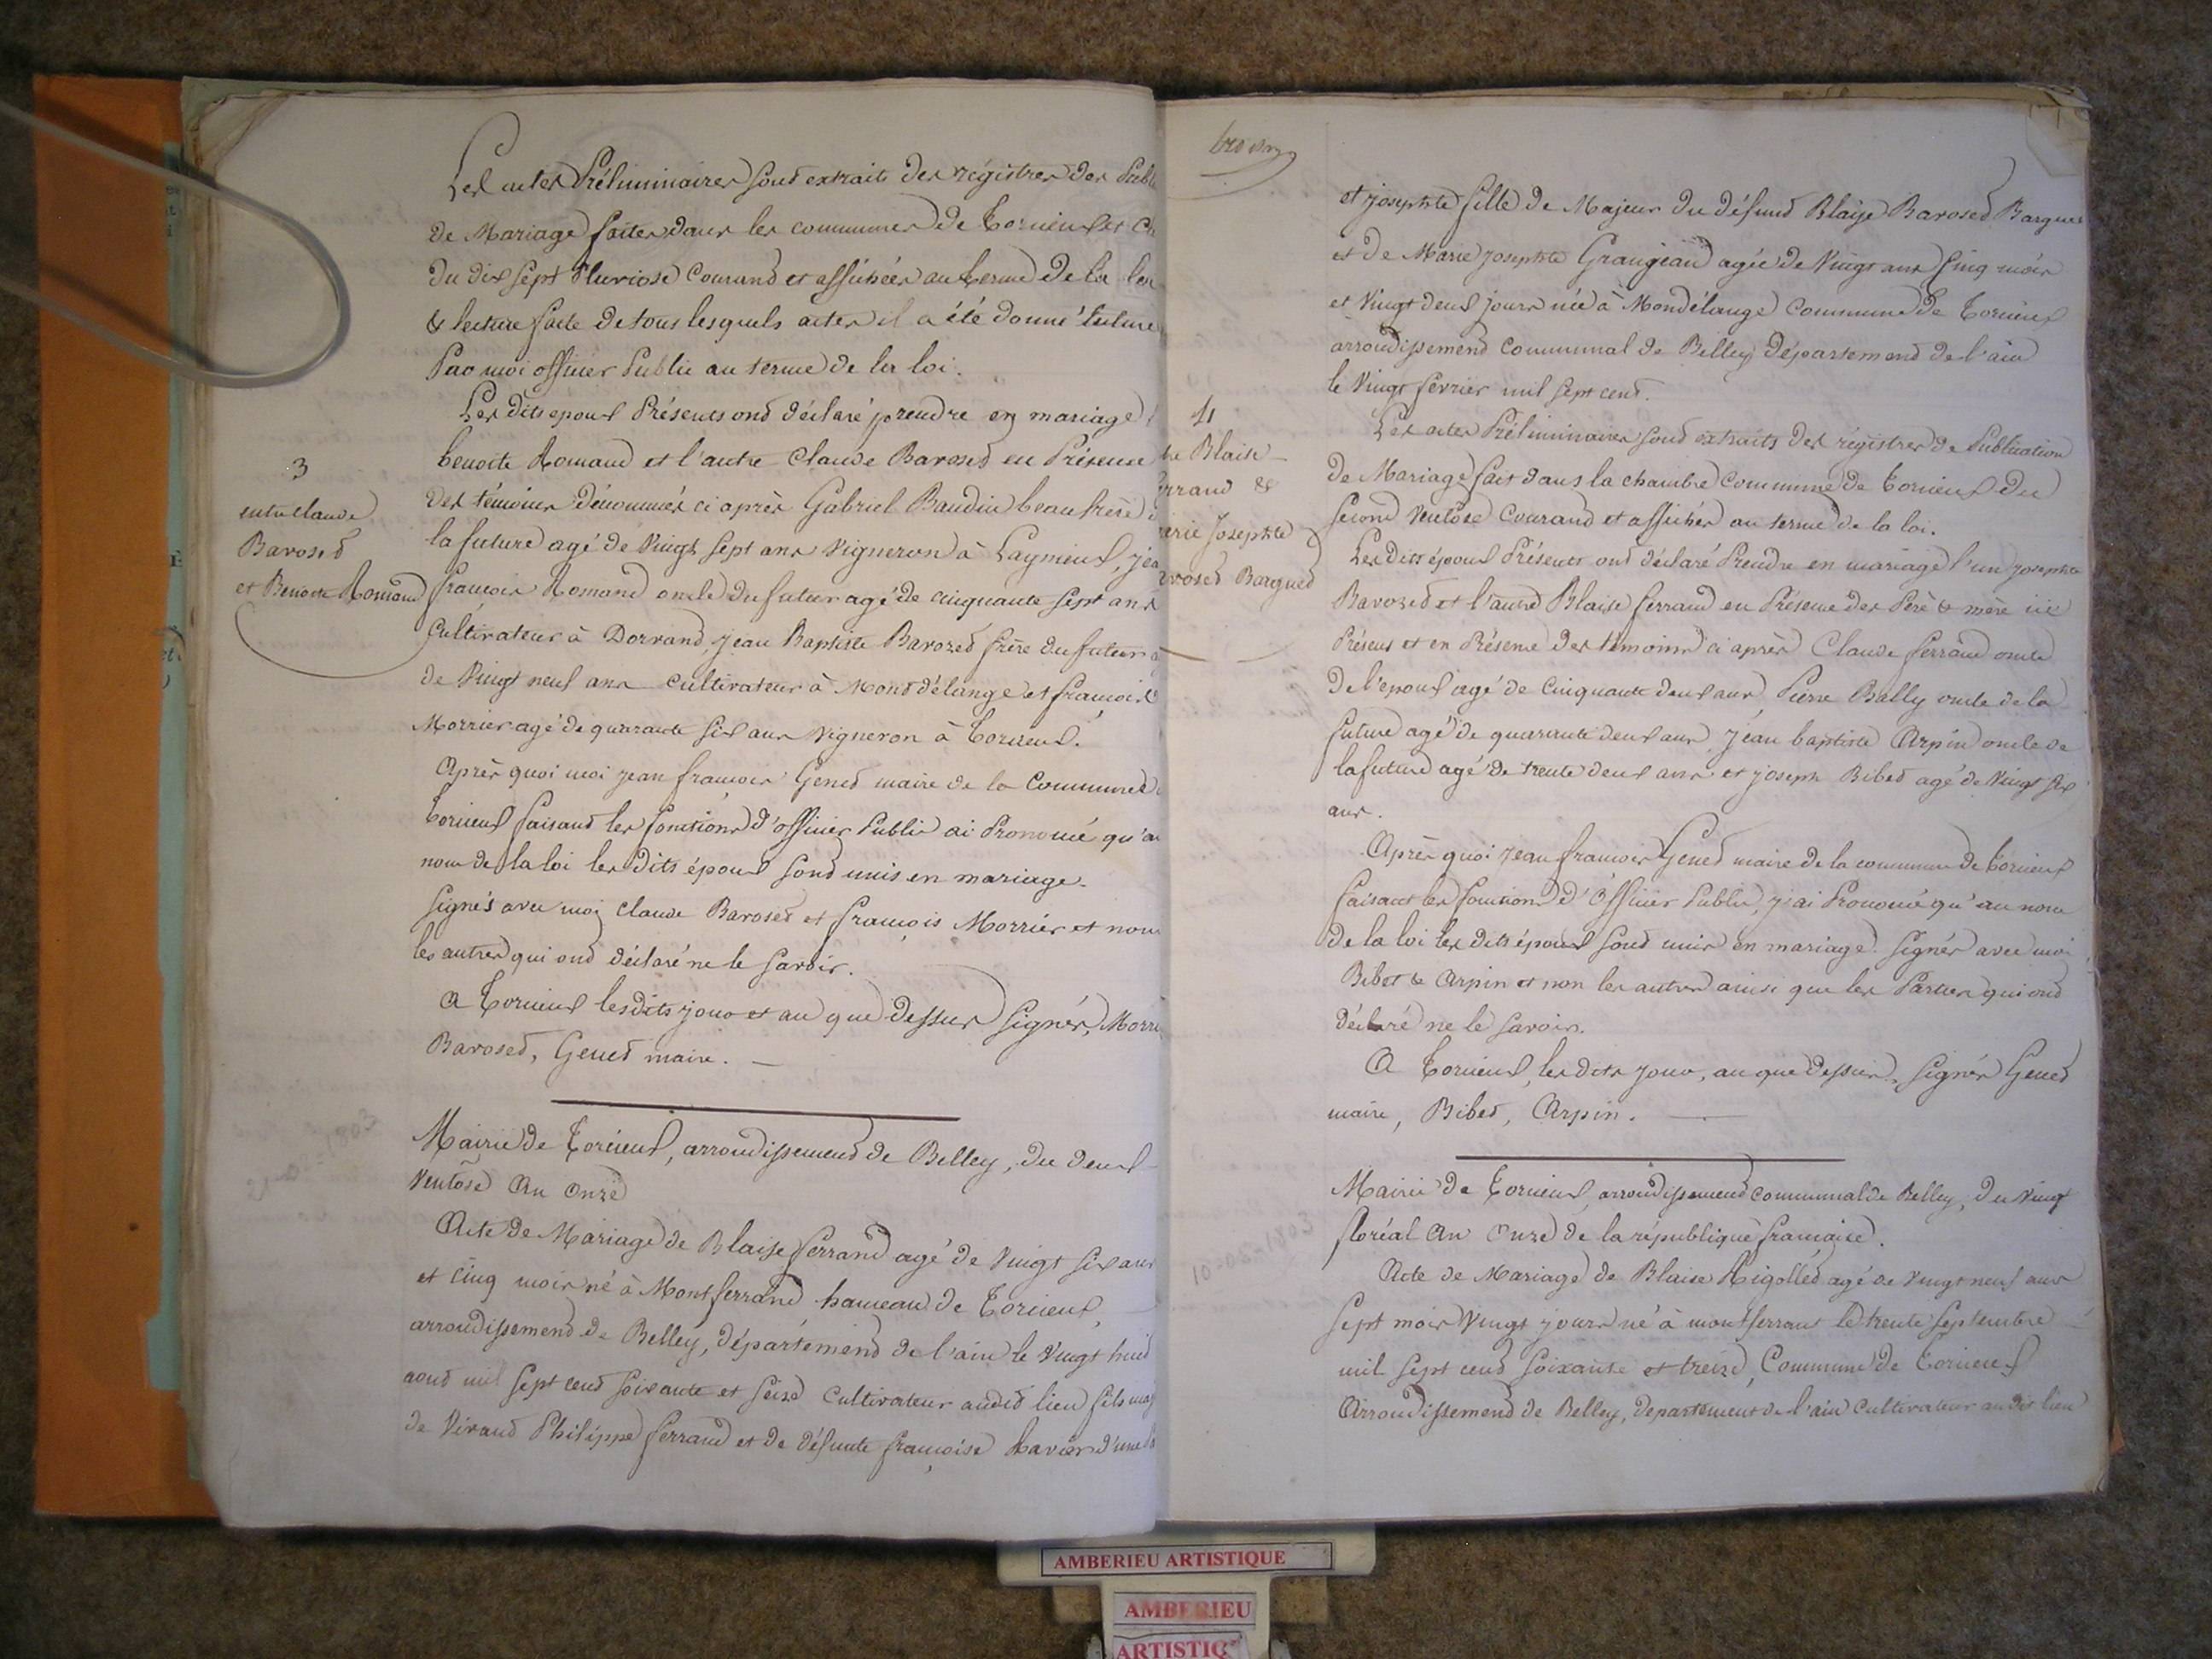 Les actes Préliminaires sont extraits des régistres des Publ
de Mariage faites dans les communes de Torcieux et Ch
du dix sept Pluviose Courand et affichées au terme de la loi
& lecture faite de tous lesquels actes il a été donné lecture
Par moi officier Public au terme de la loi.
Les dits epoux Présents ond déclaré prendre en mariage l
benoite Romand et l'autre Claude Barosed en Présence
des témoins dénommés ci après Gabriel Baudin beau frère
la future agé de Vingt sept ans Vigneron à Laymieux, jea
françois Romand oncle du futur agé de cinquante sept ans
Cultivateur à Dorvand, jean Baptiste Barozed frère du futur a
de Vingt neuf ans cultivateur à Mont délange et françois
Morrier agé de quarante six ans Vigneron à Torcieux.
Après quoi moi jean françois Gened maire de la Commune d
Torcieux faisand les fonctions d'officier Public ai Prononcé qu'au
nom de la loi les dits époux sond unis en mariage.
signés avec moi Claude Barosed et françois Morrier et non
les autres qui ond déclaré ne le savoir.
A Torcieux lesdits jour et an que dessus signés, Morri
Barosed, Gened maire. —
3
entre Claude
Barosed
et Benoite Romand
Mairie de Torcieux, arrondissemend de Belley, du deux
Ventôse An Onze
Acte de Mariage de Blaise ferrand agé de Vingt six ans
et cinq mois né à Montferrand hameau de Torcieux,
arrondissemend de Belley, départemend de l'ain le Vingt huid
aoud mil sept cend soixante et seize Cultivateur audid lieu fils maj
de Vivand Philippe ferrand et de défunte françoise d'une
et josephte fille de Majeur du défund Blaise Barosed Bargued
et de Marie josephte Grangeand agée de Vingt ans cinq mois
et Vingt deux jours née à Mondélange Commune de Torcieux
arrondissemend Communal de Belley Départemend de l'ain
le Vingt fevrier mil sept cend.
Les actes Préliminaires sond extraits des régistres de Publication
de Mariage fait dans la chambre Commune de Torcieux du
second Ventôse Courand et affichés au terme de la loi.
Les dits époux Présents ond déclaré Prendre en mariage l'un josephte
Barozed et l'autre Blaise ferrand en Présence des Père & mère ici
Présens et en Présence des témoins ci après Claude ferrand oncle
de l'epoux agé de Cinquante deux ans, Pierre Bally oncle de la
future agé de quarante deux ans, jean baptiste Arpin oncle de
la future agé de trente deux ans et joseph Bibed agé de Vingt six
ans.
Après quoi jean françois Gened maire de la commune de Torcieux
faisant les fonctions d'Officier Public, j'ai Prononcé qu'au nom
de la loi les dits époux sond unis en mariage. signés avec moi
Bibet & Arpin et non les autres ainsi que les Parties qui ond
déclaré ne le savoir.
A Torcieux, les dits jour, an que dessus. signés Gened
maire, Bibed, Arpin. —
4
re Blaise
errand &
erie Josephte
rosed Bargued
Mairie de Torcieux, arrondissemend communal de Belley, du Vingt
floréal An Onze de la république française.
Acte de Mariage de Blaise Rigolled agé de Vingt neuf ans
sept mois Vingt jours né à montferrant le trente septembre
mil sept cend soixante et treize, Commune de Torcieux
Arrondissemend de Belley, departement de l'ain Cultivateur audit lieu
AMBERIEU ARTISTIQUE
AMBERIEU
ARTISTIQ